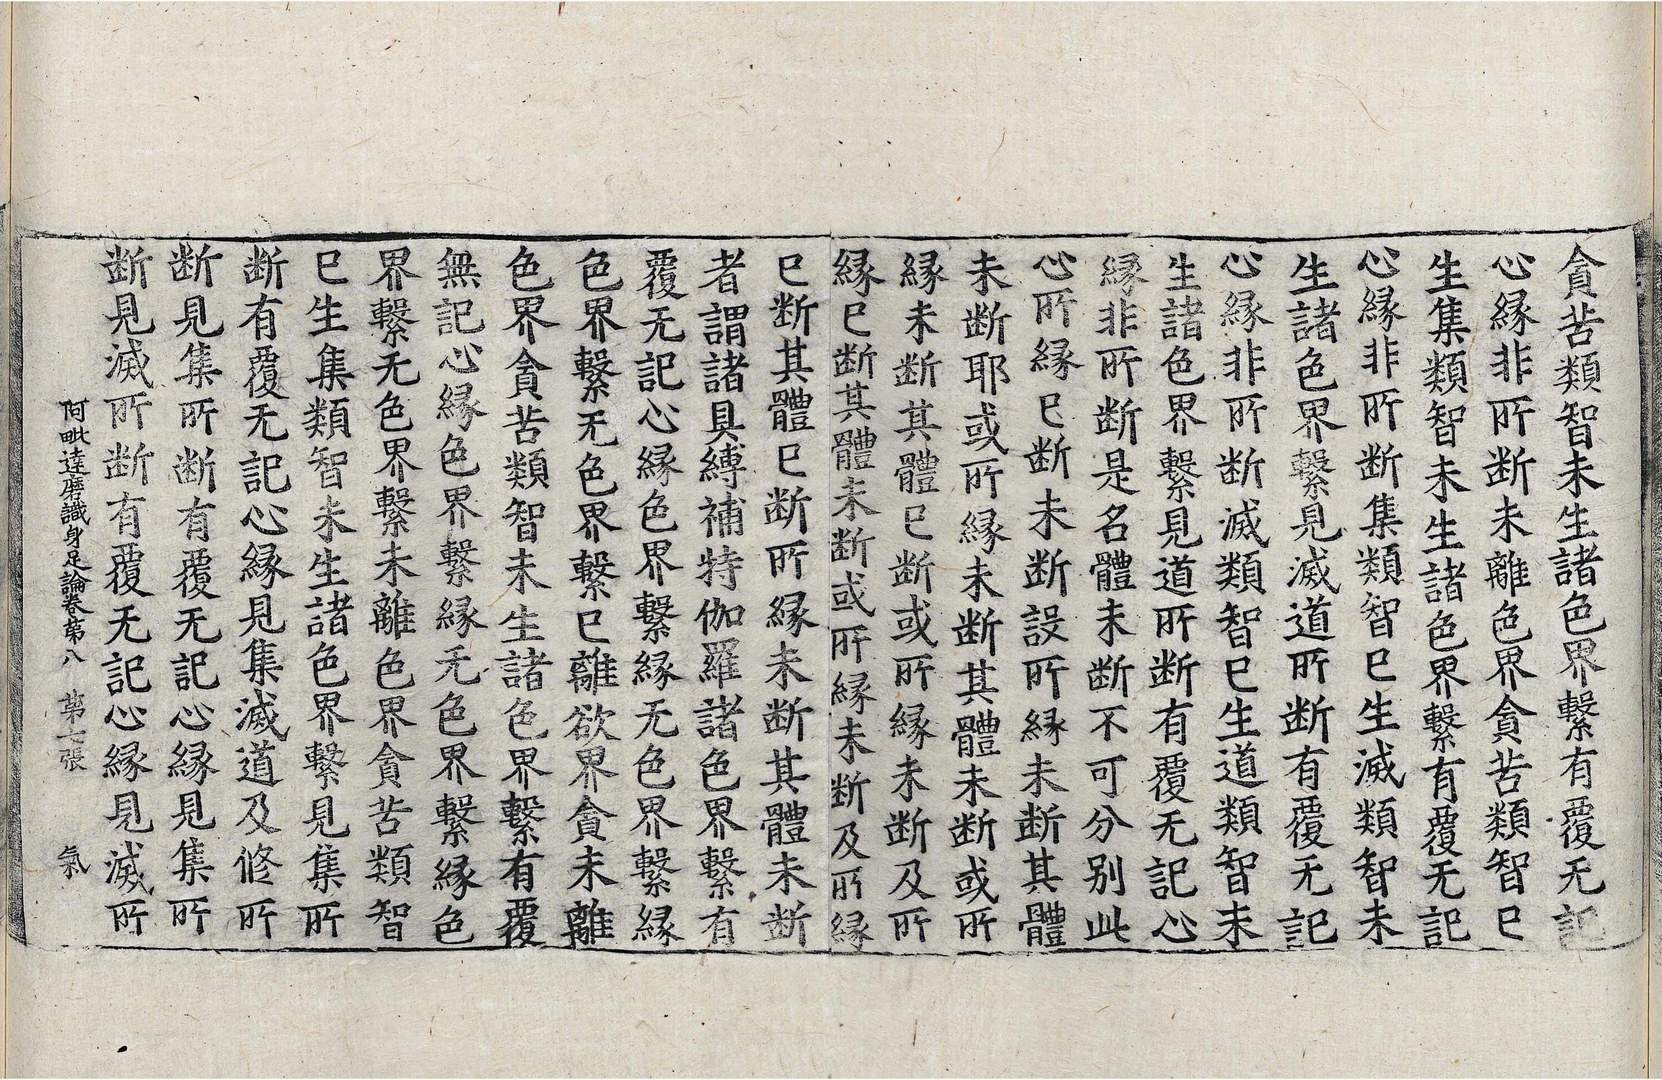 貪苦類智未生諸色界繫有覆无記
心緣非所断未離色界貪苦類智已
生集類智未生諸色界繫有覆无記
心緣非所断集類智已生滅類智未
生諸色界繫見滅道所断有覆无記
心緣非所断滅類智已生道類智未
生諸色界繫見道所断有覆无記心
緣非所断是名體未断不可分別此
心所緣已断未断設所緣未断其體
未断耶或所緣未断其體未断或所
緣未断其體已断或所緣未断及所
緣已断其體未断或所緣未断及所緣
已断其體已断所緣未断其體未断
者謂諸具縛補特伽羅諸色界繫有
覆无記心緣色界繫緣无色界繫緣
色界繫无色界繫已離欲界貪未離
色界貪苦類智未生諸色界繫有覆
無記心緣色界繫緣无色界繫緣色
界繫无色界繫未離色界貪苦類智
已生集類智未生諸色界繫見集所
断有覆无記心緣見集滅道及修所
断見集所断有覆无記心緣見集所
断見滅所断有覆无記心緣見滅所
阿毗達磨識身足論卷第八 第七張 氣